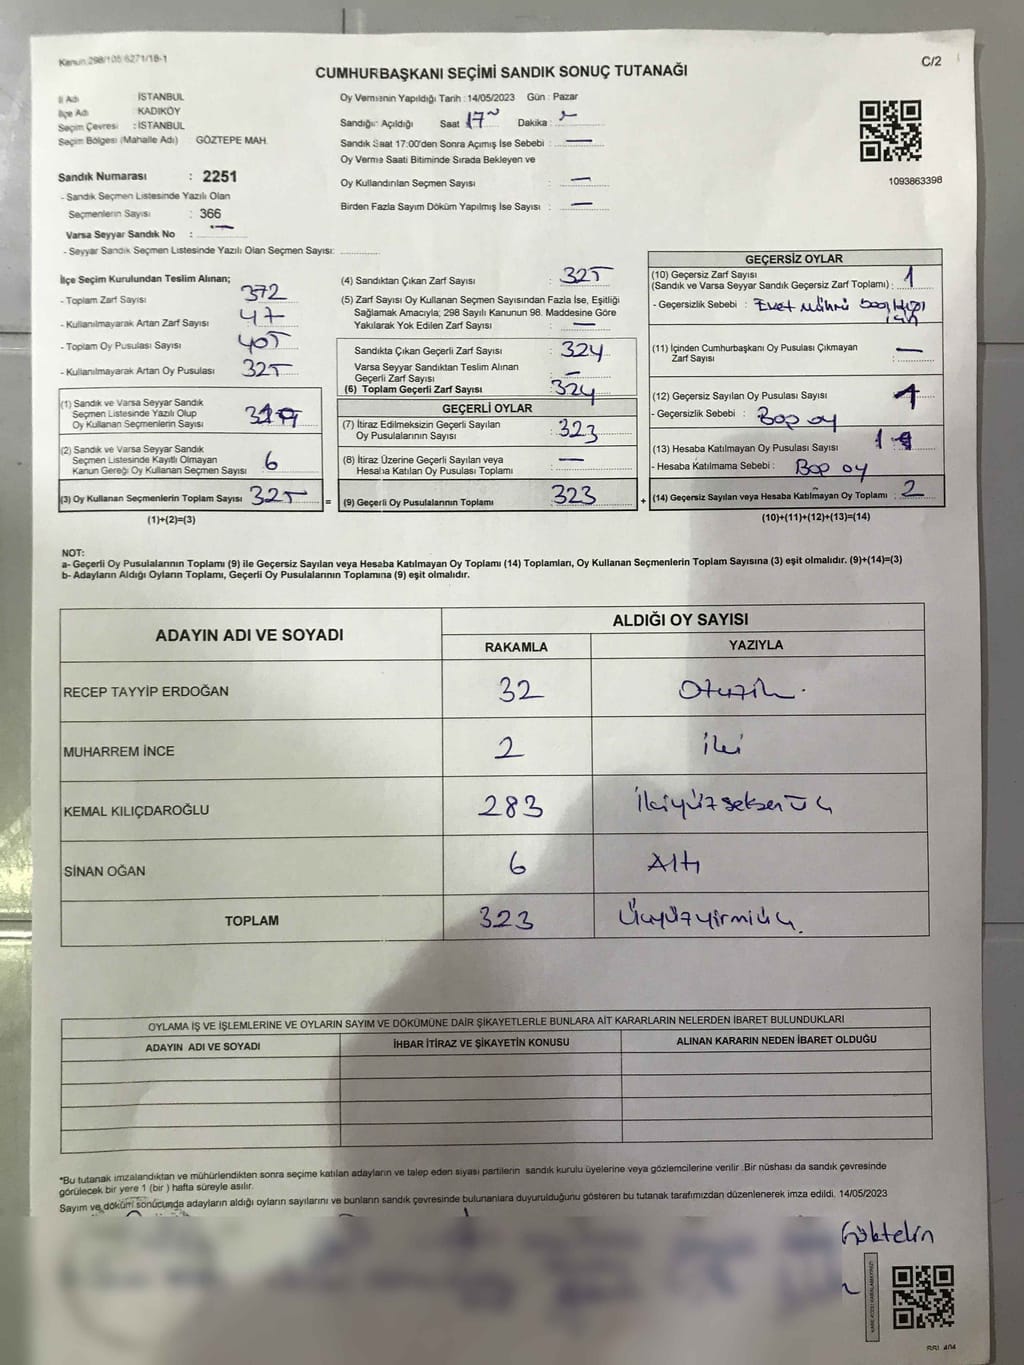 Kanun 298/105 6271/18-1
C/2
CUMHURBAŞKANI SEÇİMİ SANDIK SONUÇ TUTANAĞI
İl Adı İSTANBUL
İlçe Adı KADIKÖY
Seçim Çevresi : İSTANBUL
Seçim Bölgesi (Mahalle Adı) GÖZTEPE MAH.
Sandık Numarası : 2251
- Sandık Seçmen Listesinde Yazılı Olan
Seçmenlerin Sayısı : 366
Varsa Seyyar Sandık No : —
- Seyyar Sandık Seçmen Listesinde Yazılı Olan Seçmen Sayısı:
Oy Vermenin Yapıldığı Tarih : 14/05/2023 Gün : Pazar
Sandığın Açıldığı Saat 17 Dakika :
Sandık Saat 17:00'den Sonra Açımış İse Sebebi : —
Oy Verme Saati Bitiminde Sırada Bekleyen ve
Oy Kullandırılan Seçmen Sayısı : —
Birden Fazla Sayım Döküm Yapılmış İse Sayısı : —
1093863398
İlçe Seçim Kurulundan Teslim Alınan;
- Toplam Zarf Sayısı 372
- Kullanılmayarak Artan Zarf Sayısı : 47
- Toplam Oy Pusulası Sayısı : 405
- Kullanılmayarak Artan Oy Pusulası : 325
(1) Sandık ve Varsa Seyyar Sandık
Seçmen Listesinde Yazılı Olup
Oy Kullanan Seçmenlerin Sayısı :
(2) Sandık ve Varsa Seyyar Sandık
Seçmen Listesinde Kayıtlı Olmayan
Kanun Gereği Oy Kullanan Seçmen Sayısı : 6
(3) Oy Kullanan Seçmenlerin Toplam Sayısı : 325 =
(1)+(2)=(3)
(4) Sandıktan Çıkan Zarf Sayısı : 325
(5) Zarf Sayısı Oy Kullanan Seçmen Sayısından Fazla İse, Eşitliği
Sağlamak Amacıyla; 298 Sayılı Kanunun 98. Maddesine Göre
Yakılarak Yok Edilen Zarf Sayısı : —
Sandıkta Çıkan Geçerli Zarf Sayısı : 324
Varsa Seyyar Sandıktan Teslim Alınan
Geçerli Zarf Sayısı : —
(6) Toplam Geçerli Zarf Sayısı 324
GEÇERLİ OYLAR
(7) İtiraz Edilmeksizin Geçerli Sayılan
Oy Pusulalarının Sayısı : 323
(8) İtiraz Üzerine Geçerli Sayılan veya
Hesaba Katılan Oy Pusulası Toplamı : —
(9) Geçerli Oy Pusulalarının Toplamı 323 +
GEÇERSİZ OYLAR
(10) Geçersiz Zarf Sayısı
(Sandık ve Varsa Seyyar Sandık Geçersiz Zarf Toplamı) : 1
- Geçersizlik Sebebi : Evet Mührü
(11) İçinden Cumhurbaşkanı Oy Pusulası Çıkmayan
Zarf Sayısı : —
(12) Geçersiz Sayılan Oy Pusulası Sayısı 1
- Geçersizlik Sebebi : Boş oy
(13) Hesaba Katılmayan Oy Pusulası Sayısı : 1
- Hesaba Katılmama Sebebi : Boş oy
(14) Geçersiz Sayılan veya Hesaba Katılmayan Oy Toplamı : 2
(10)+(11)+(12)+(13)=(14)
NOT:
a- Geçerli Oy Pusulalarının Toplamı (9) ile Geçersiz Sayılan veya Hesaba Katılmayan Oy Toplamı (14) Toplamları, Oy Kullanan Seçmenlerin Toplam Sayısına (3) eşit olmalıdır. (9)+(14)=(3)
b- Adayların Aldığı Oyların Toplamı, Geçerli Oy Pusulalarının Toplamına (9) eşit olmalıdır.
ADAYIN ADI VE SOYADI ALDIĞI OY SAYISI
RAKAMLA YAZIYLA
RECEP TAYYİP ERDOĞAN 32 Otuziki
MUHARREM İNCE 2 İki
KEMAL KILIÇDAROĞLU 283 İkiyüzseksenüç
SİNAN OĞAN 6 Altı
TOPLAM 323 Üçyüzyirmiüç.
OYLAMA İŞ VE İŞLEMLERİNE VE OYLARIN SAYIM VE DÖKÜMÜNE DAİR ŞİKAYETLERLE BUNLARA AİT KARARLARIN NELERDEN İBARET BULUNDUKLARI
ADAYIN ADI VE SOYADI İHBAR İTİRAZ VE ŞİKAYETİN KONUSU ALINAN KARARIN NEDEN İBARET OLDUĞU
*Bu tutanak imzalandıktan ve mühürlendikten sonra seçime katılan adayların ve talep eden siyasi partilerin sandık kurulu üyelerine veya gözlemcilerine verilir .Bir nüshası da sandık çevresinde
görülecek bir yere 1 (bir ) hafta süreyle asılır.
Sayım ve döküm sonucunda adayların aldığı oyların sayılarını ve bunların sandık çevresinde bulunanlara duyurulduğunu gösteren bu tutanak tarafımızdan düzenlenerek imza edildi. 14/05/2023
Göktekin